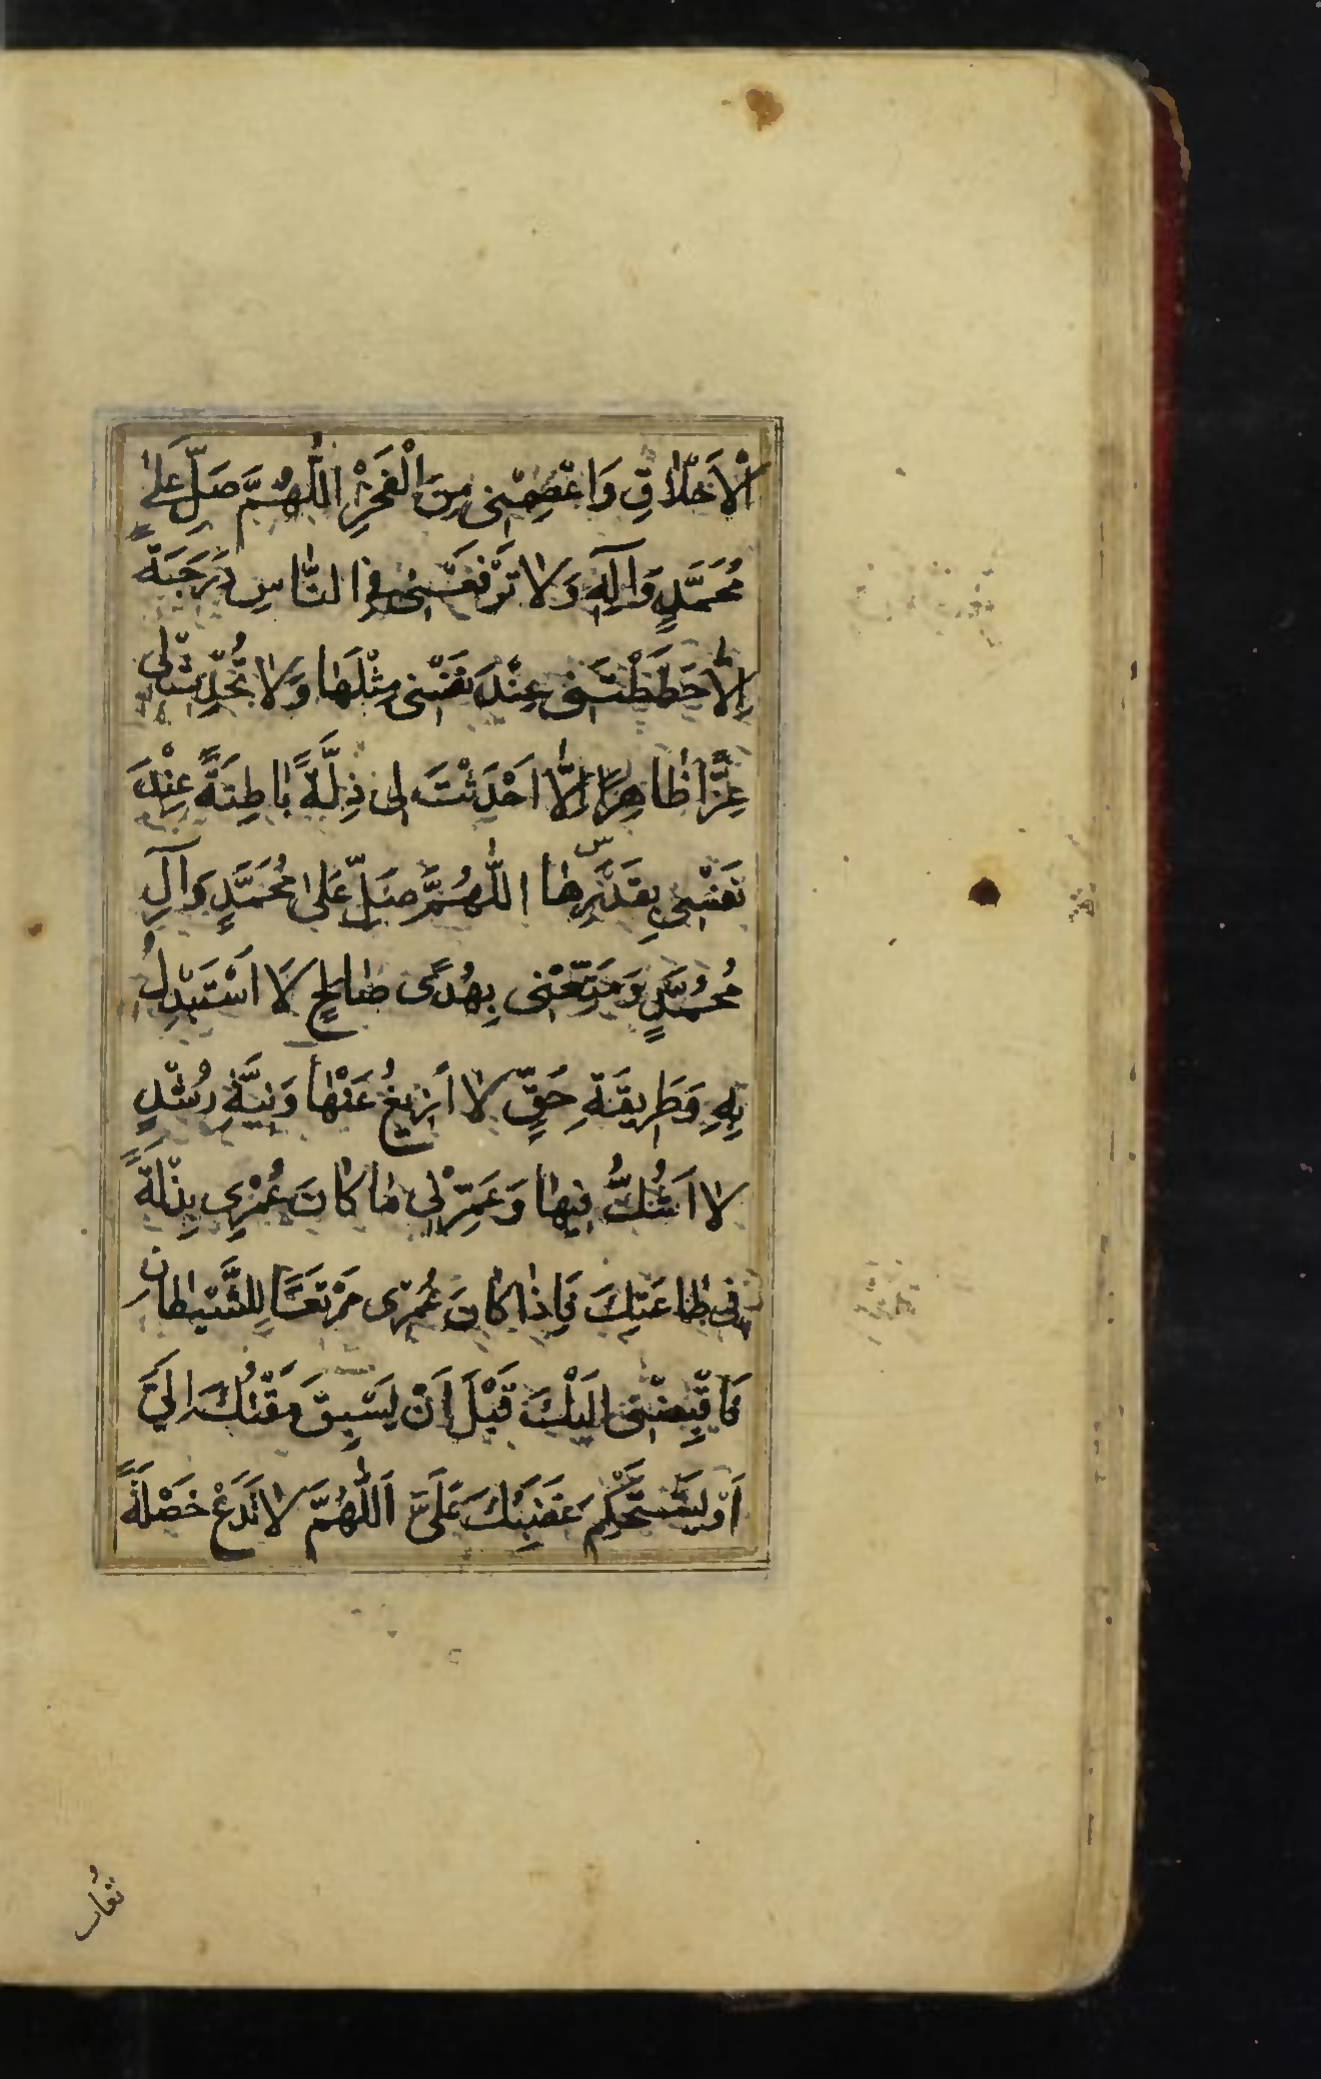 الْاَخْلَاقِ وَاعْصِمْنى مِنَ الْفَخْرِ اللّٰهُمَّ صَلِّ عَلىٰ
مُحَمَّدٍ وَآلِهِ وَلا تَرْفَعْنى فِى النّاسِ دَرَجَةً
اِلّا حَطَطْتَنى عِنْدَ نَفْسى مِثْلَها وَلا تُحْدِثْ لى
عِزًّا ظاهِرًا اِلّا اَحْدَثْتَ لى ذِلَّةً باطِنَةً عِنْدَ
نَفْسى بِقَدَرِها اللّٰهُمَّ صَلِّ عَلى مُحَمَّدٍ وَآلِ
مُحَمَّدٍ وَمَتِّعْنى بِهُدًى صالِحٍ لا اَسْتَبْدِلُ
بِهِ وَطَرِيقَةِ حَقٍّ لا اَزيغُ عَنْها وَنِيَّةِ رُشْدٍ
لا اَشُكُّ فيها وَعَمِّرْنى ما كانَ عُمْرِى بِذْلَةً
فى طاعَتِكَ فَاِذا كانَ عُمْرى مَرْتَعًا لِلشَّيْطانِ
فَاقْبِضْنى اِلَيْكَ قَبْلَ اَنْ يَسْبِقَ مَقْتُكَ اِلَيَّ
اَوْ يَسْتَحْكِمَ غَضَبُكَ عَلَىَّ اَللّٰهُمَّ لا تَدَعْ خَصْلَةً
تُعابُ